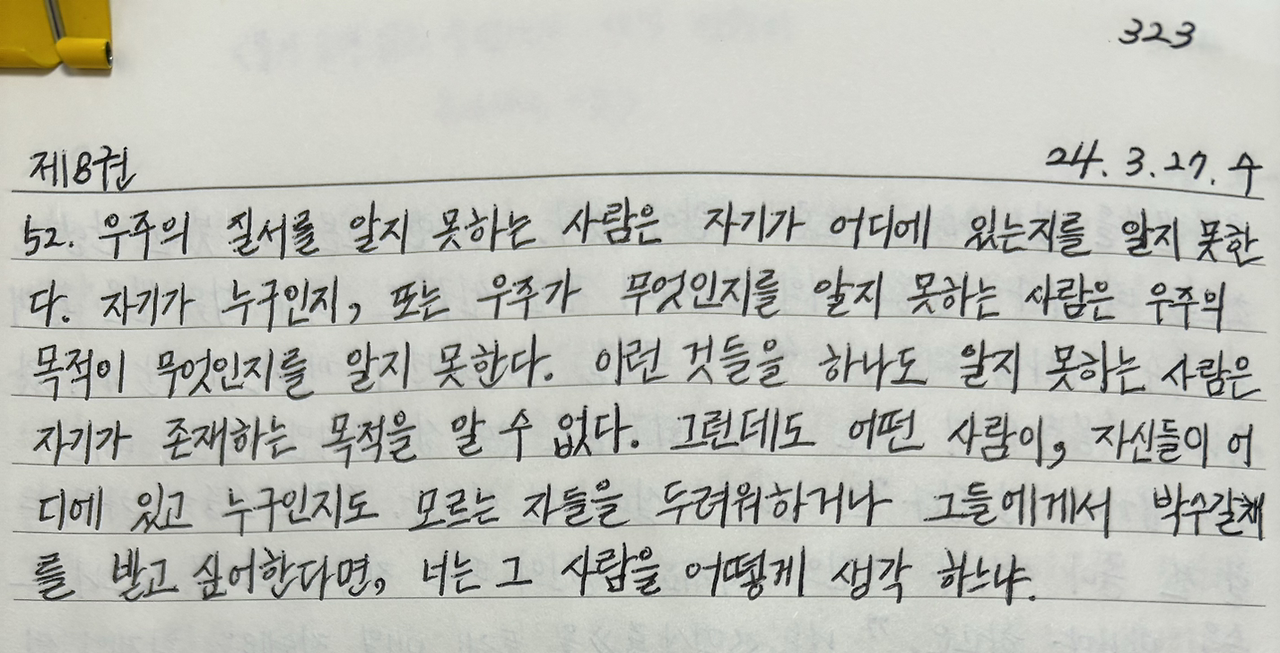 323
제18권
24. 3. 27. 수
52. 우주의 질서를 알지 못하는 사람은 자기가 어디에 있는지를 알지 못한
다. 자기가 누구인지, 또는 우주가 무엇인지를 알지 못하는 사람은 우주의
목적이 무엇인지를 알지 못한다. 이런 것들을 하나도 알지 못하는 사람은
자기가 존재하는 목적을 알 수 없다. 그런데도 어떤 사람이, 자신들이 어
디에 있고 누구인지도 모르는 자들을 두려워하거나 그들에게서 박수갈채
를 받고 싶어한다면, 너는 그 사람을 어떻게 생각 하느냐.